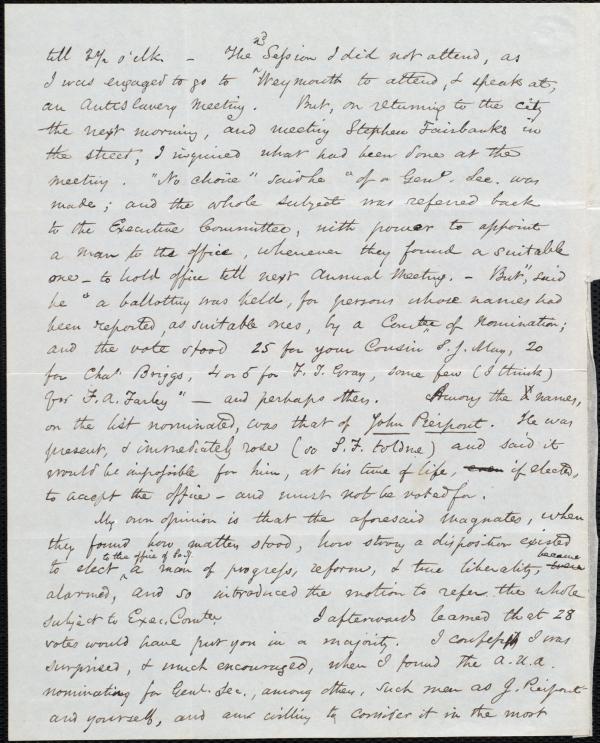 till 2½ o'clk. – The 2d Session I did not attend, as
I was engaged to go to Weymouth to attend, & speak at,
an Antislavery Meeting. But, on returning to the city
the next morning, and meeting Stephen Fairbanks in
the street, I inquired what had been done at the
meeting. "No choice" said he "of a Genl. Sec. was
made; and the whole subject was referred back
to the Executive Committee, with power to appoint
a man to the office, whenever they found a suitable
one – to hold office till next Annual Meeting. – But", said
he "a ballotting was held, for persons whose names had
been reported, as suitable ones, by a Comtee of Nomination;
and the vote stood 25 for your Cousin S. J. May, 20
for Chas. Briggs, 4 or 5 for F. T. Gray, some few (I think)
for F. A. Farley" – and perhaps others. Among the names,
on the list nominated, was that of John Pierpont. He was
present, & immediately rose (so S. F. told me) and said it
would be impossible for him, at his time of life, even if elected,
to accept the office – and must not be voted for.
My own opinion is that the aforesaid magnates, when
they found how matters stood, how strong a disposition existed
to elect to the office of Secy. a man of progress, reform, & true liberality, were became
alarmed, and so introduced the motion to refer the whole
subject to Exec. Comtee I afterwards learned that 28
votes would have put you in a majority. I confess I was
surprised, & much encouraged, when I found the A.U.A.
nominating for Genl. Sec., among others, such men as J. Pierpont
and yourself, and am willing to consider it in the most